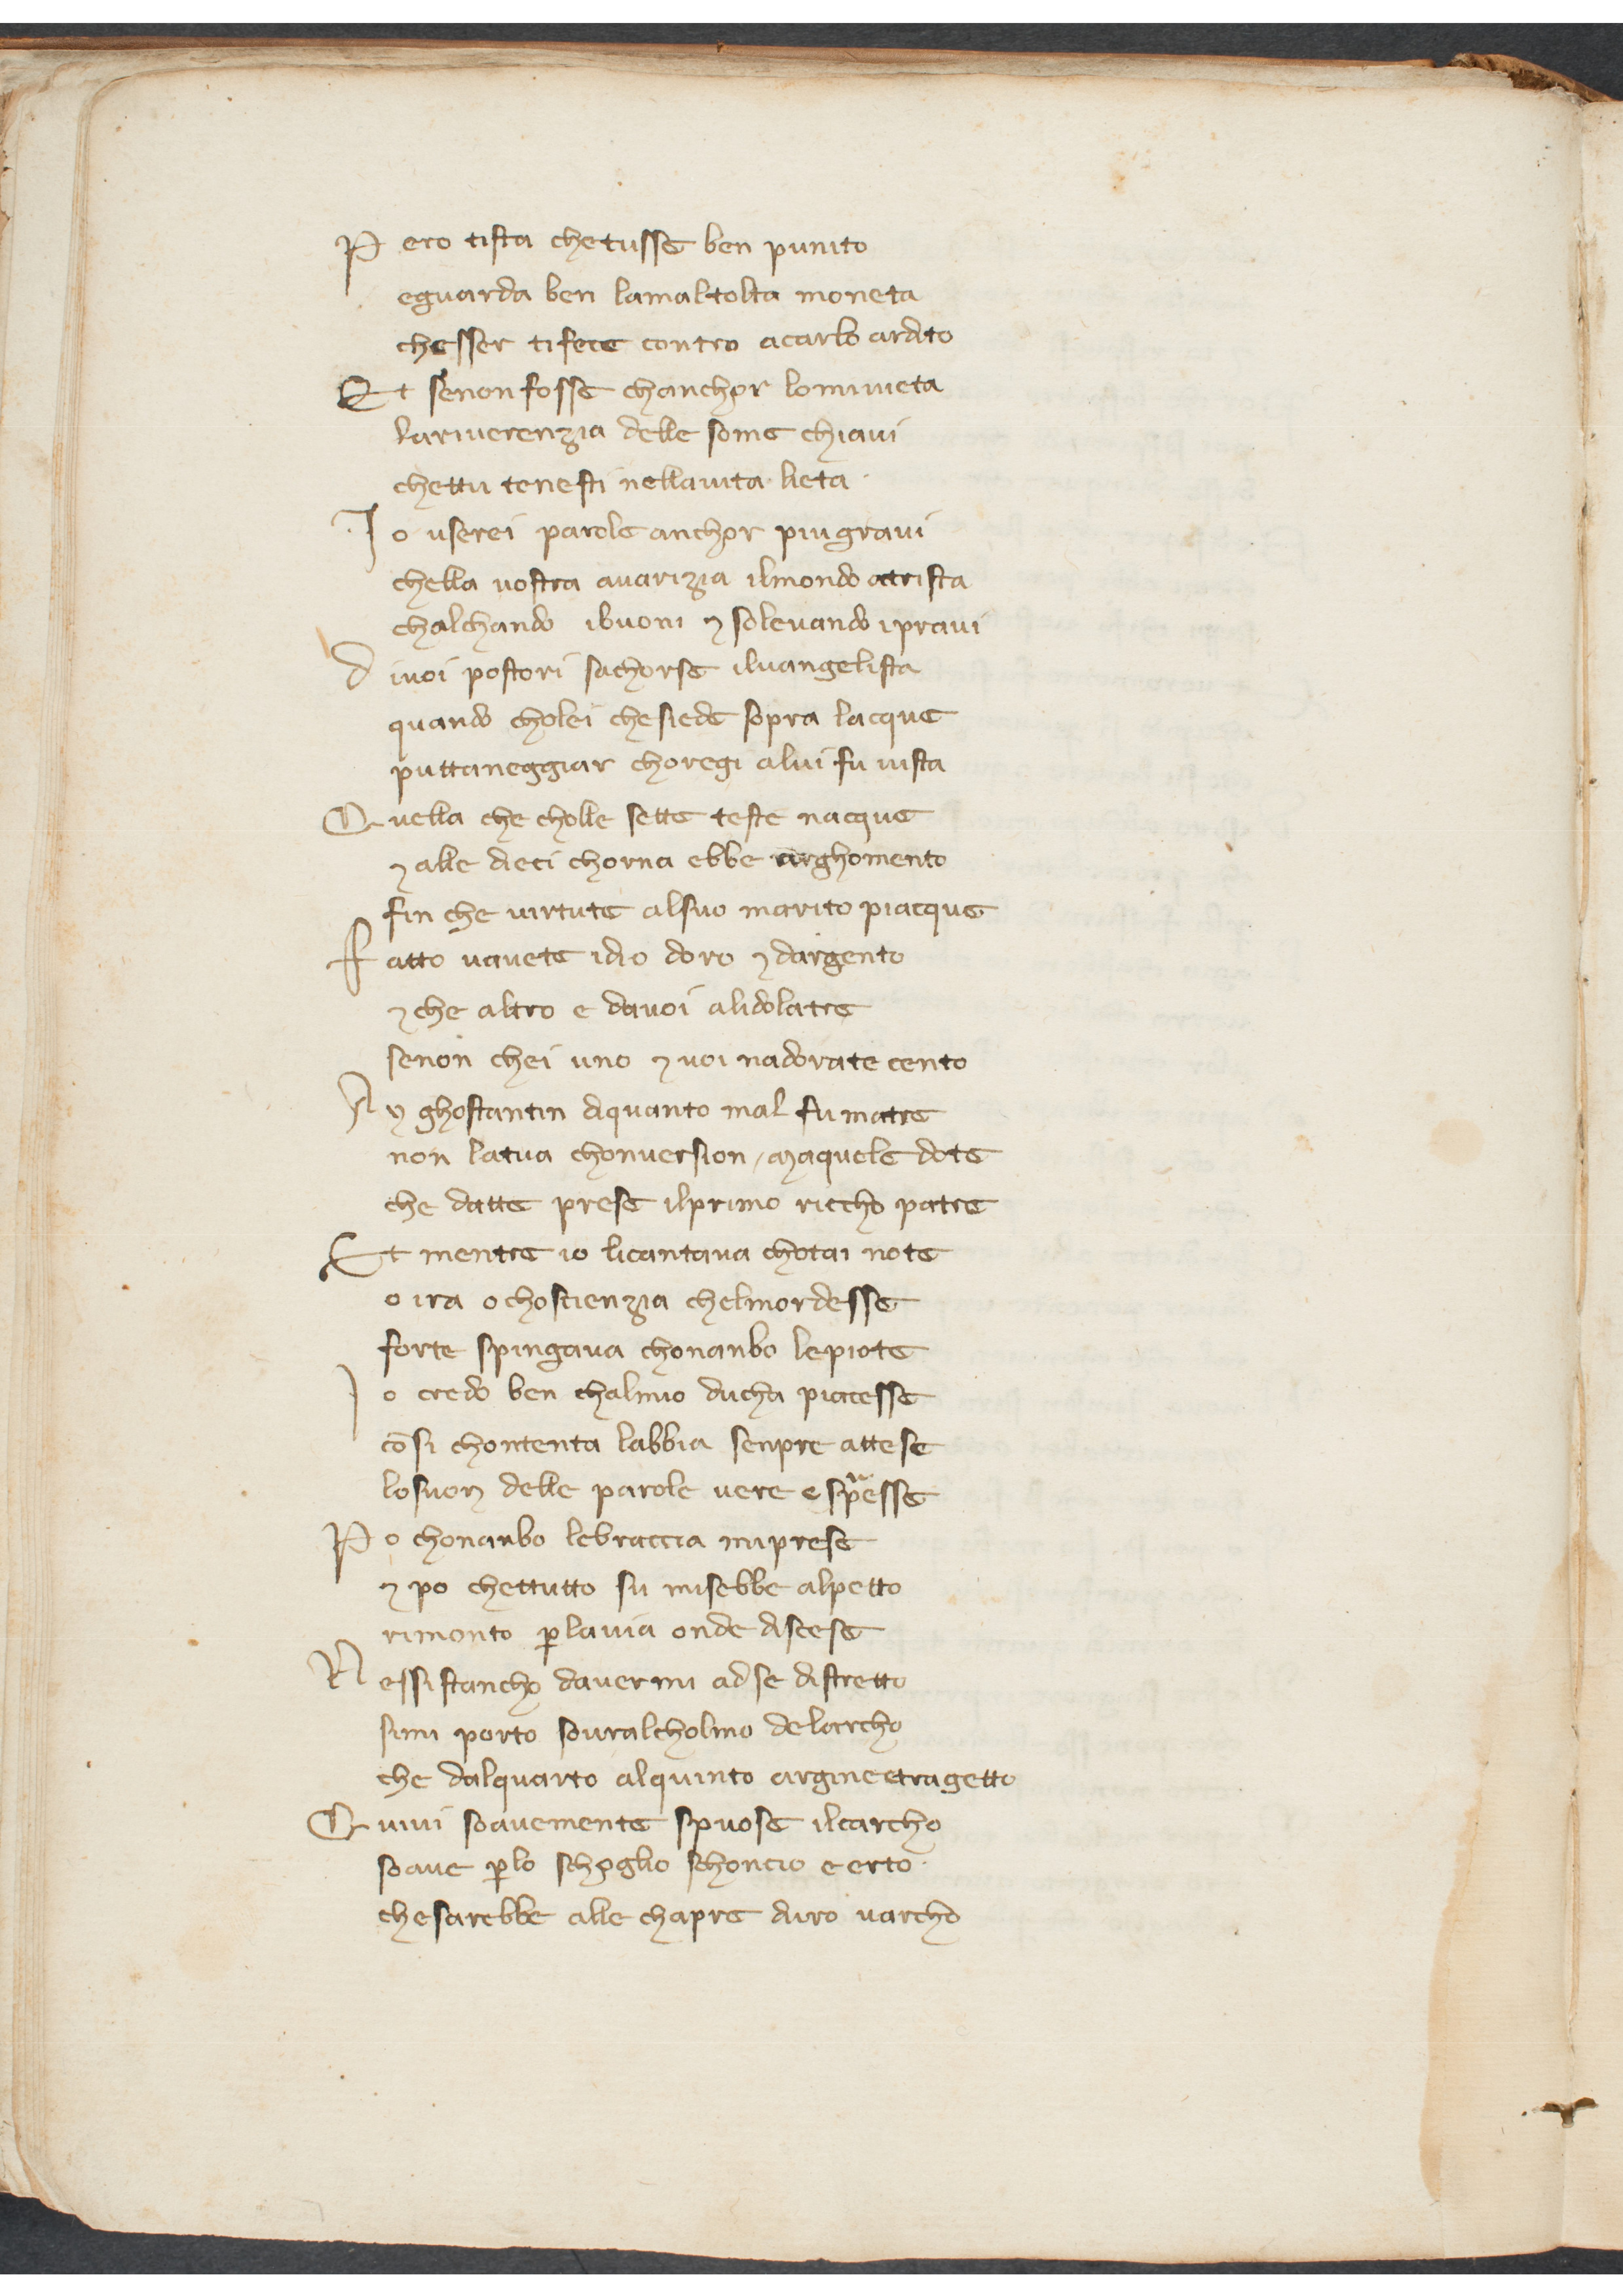 Pero tista chetusse ben punito
eguarda ben lamaltolta moneta
chesser tifece contro acarlo ardito
Et senon fosse chanchor lomiuieta
lariuerenzia delle some chiaui
chettu tenesti nellauita lieta
Io userei parole anchor piugraui
chella uostra auarizia ilmondo atrista
chalchando ibuoni ⁊ soleuando ipraui
diuoi pastori sachorse iluangelista
quando cholei chesiede sopra lacque
puttaneggiar choregi alui fu uista
Quella che cholle sette teste nacque
⁊ alle dieci chorna ebbe arghomento
fin che uirtute alsuo marito piacque
Fatto uauete idio doro ⁊ dargento
⁊ che altro e dauoi alidolatre
senon chei uno ⁊ uoi nadorate cento
Ay ghostantin diquanto mal fu matre
non latua chonuersion / maquele dote
che datte prese ilprimo riccho patre
Et mentre io licantaua chotai note
o ira o choscienzia chelmordesse
forte spingaua chonanbo lepiote
Io credo ben chalmio ducha piacesse
cosi chontenta labbia senpre attese
losuon delle parole uere espresse
Po chonanbo lebraccia miprese
⁊ po chettutto su misebbe alpetto
rimonto ꝑlauia onde discese
Nessi stancho dauermi adse distretto
simi porto soura lcholmo delarcho
che dalquarto alquinto argine etragetto
Quiui soauemente spuose ilcarcho
soaue ꝑlo schoglio schoncio e erto
chesarebbe alle chapre duro uarcho